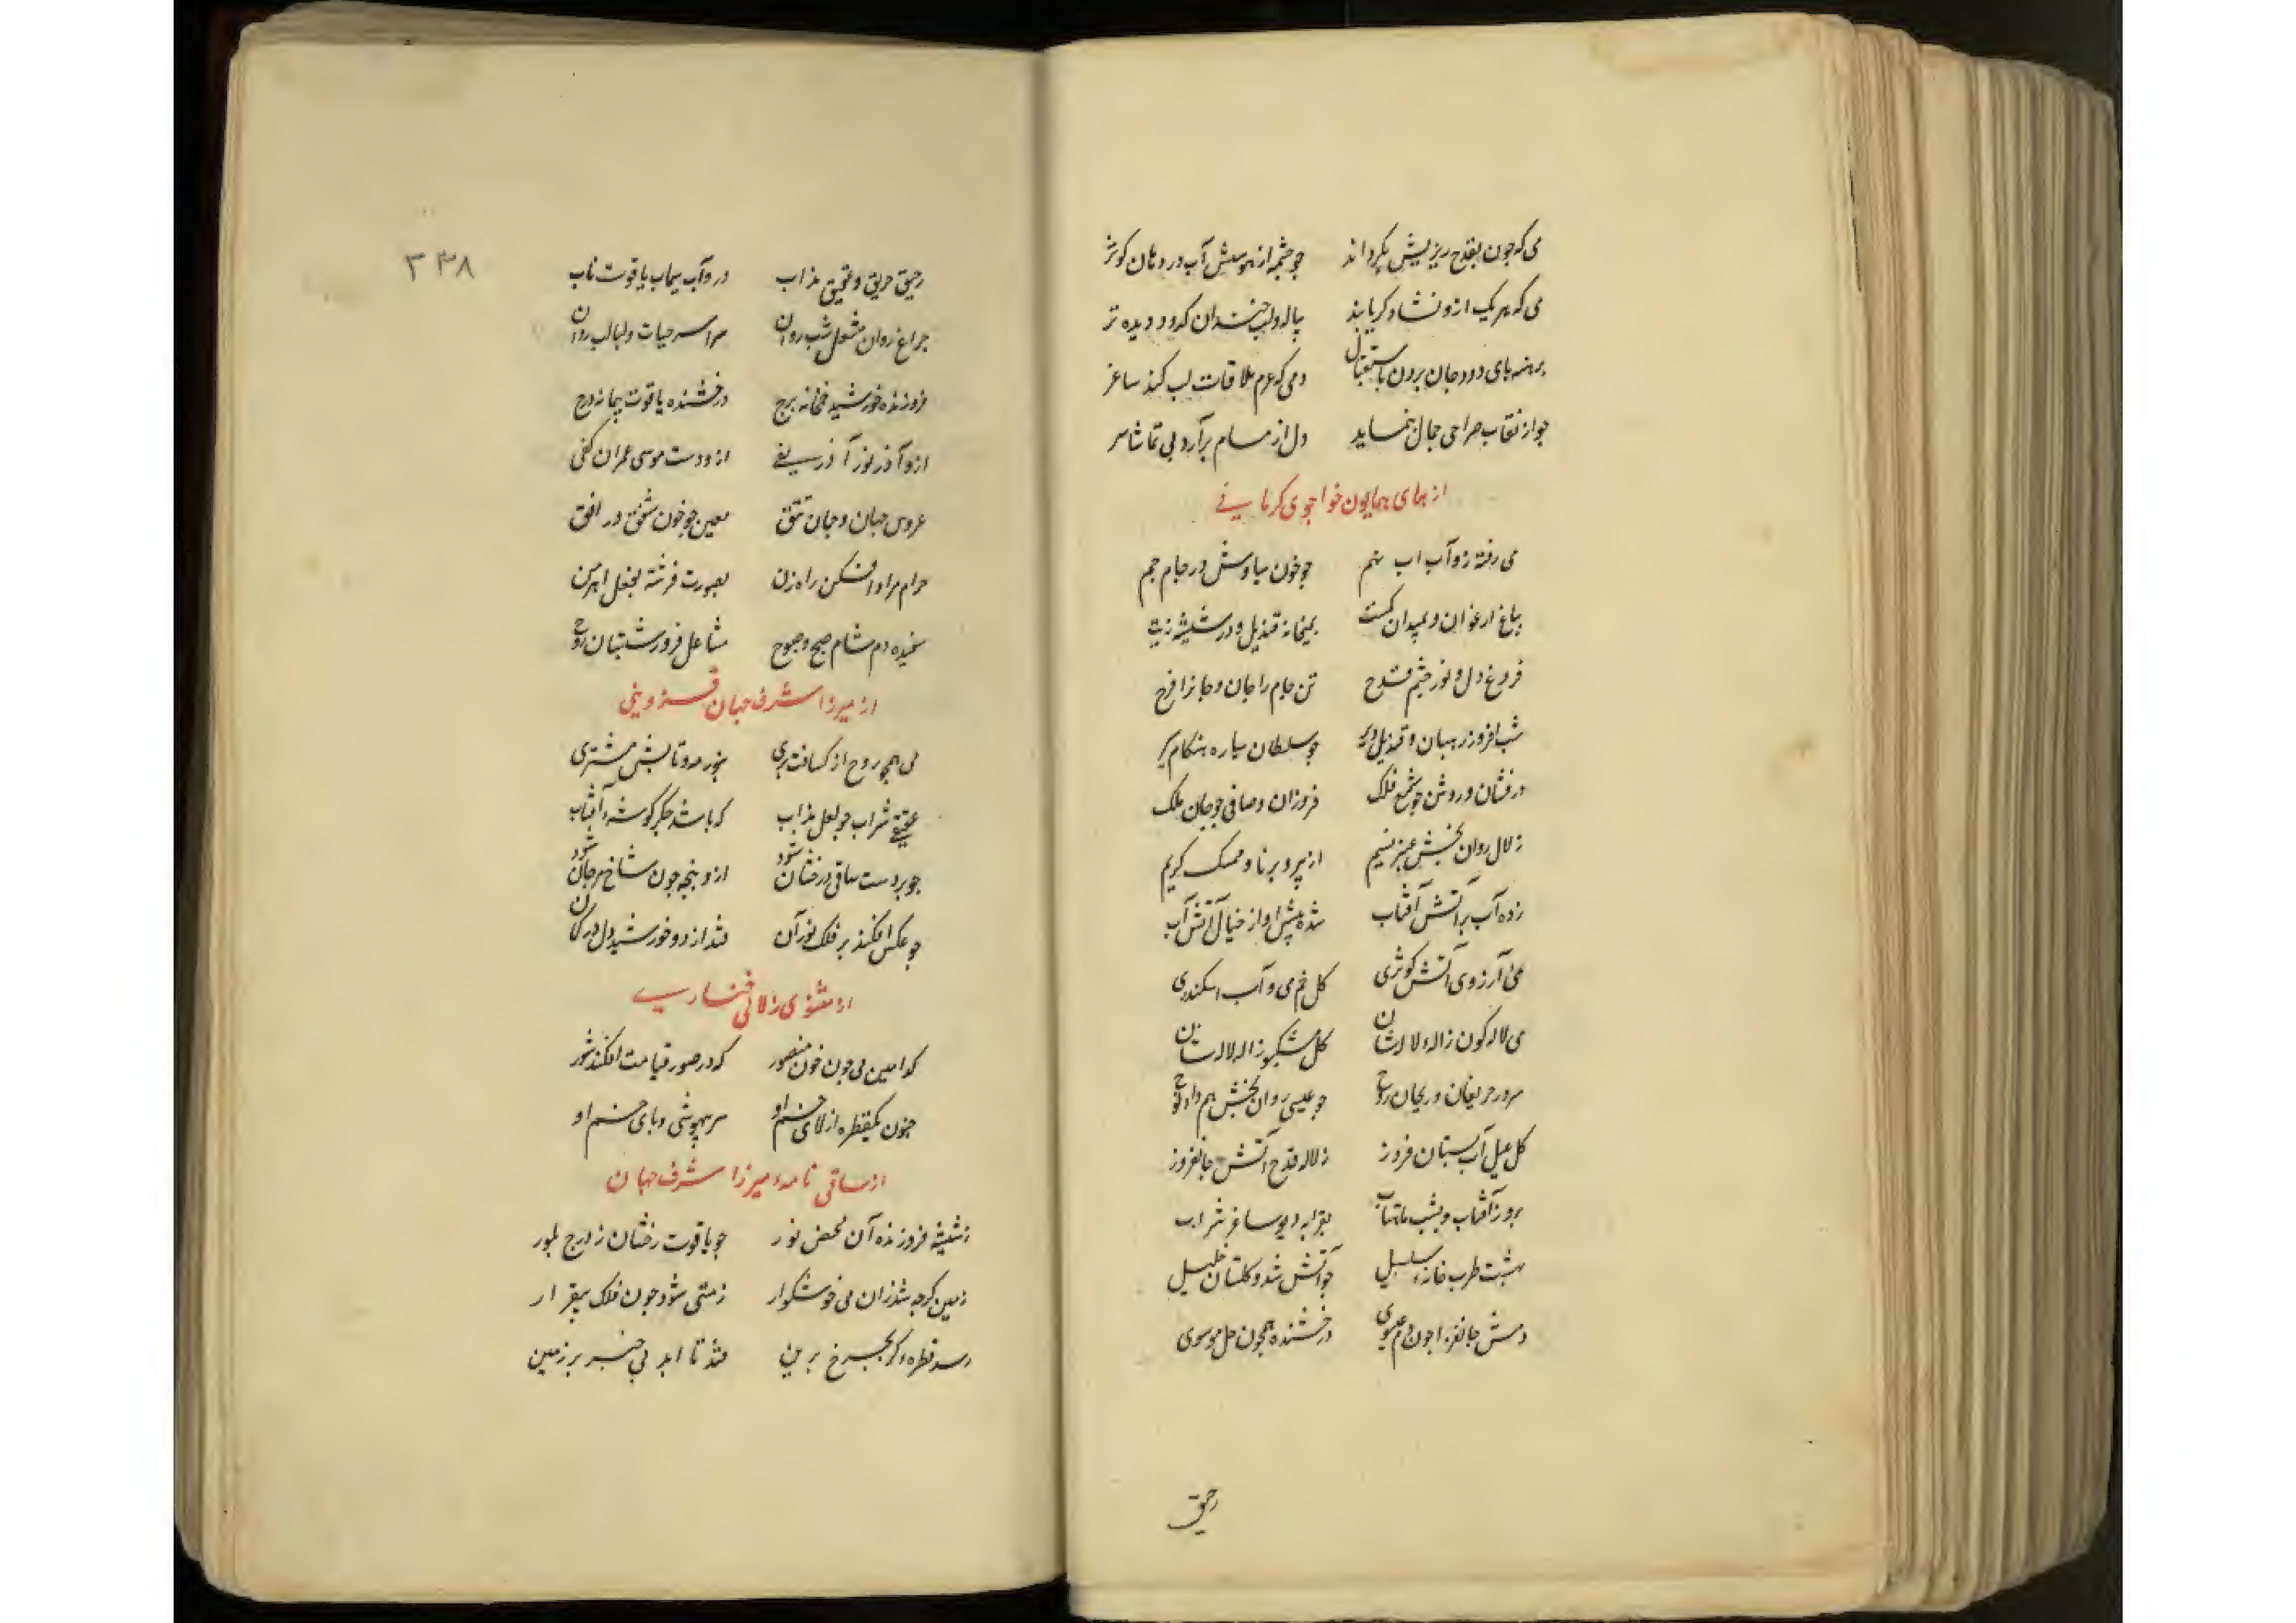 می که چون بقدح ریزیش بگرداند چو چشمه از هوسش آب در دهان کوثر
می که هر یک ازو نشاه کر یابند پیاله ولب خندان کدو و دیده تر
برهنه پای دود جان برون باستقبال دمی که عزم ملاقات لب کند ساغر
چو از نقاب صراحی جمال بنماید دل از مسام برآرد پی تماشا سر
از همای همایون خواجوی کرمانی
می رفته زو آب اب نهم چو خون سیاوش در جام جم
بباغ ارغوان و بمیدان کمیت بمیخانه قندیل و در شیشه زیت
فروغ دل و نور چشم قدح تن جام را جان و جانرا فرح
شب افروز رهبان و قندیل دیر چو سلطان سیاره هنکام سیر
درفشان و روشن چو شمع فلک فروزان و صافی چو جان ملک
زلال روان بخش عنبر نسیم از پیر و برنا و ممسک کریم
زده آب بر آتش آفتاب شده پیش او از خیال آتش آب
می آرزوی آتش کوثری کل خم می و آب اسکندری
می لاله کون ژاله لالستان کل مشکبو ژاله لالستان
سرور حریفان و ریحان روح چو عیسی روان بخش هم داد نوح
کل میل آب بستان فروز زلال قدح آتش جانفروز
بروز آفتاب و بشب ماهتاب بقرابه دیو ساغر شراب
بهشت طرب خانه سلسبیل چو آتش شد و کلستان خلیل
دمش جانفزا چون دم عیسوی درخشنده همچون حل موسوی
رحیق
۳۳۸
رحیق حریق و عقیق مذاب در و آب سیماب یاقوت ناب
چراغ روان مشعل شب روان سراسر حیات و لبالب روان
فروزنده خورشید خمخانه برج درخشنده یاقوت پیمانه درج
ازو آذر نوز آذر سفی ازو دست موسی عمران کفی
عروس جهان و جهان تتق معین چو خون شفق در افق
حرام مراد افکن راه زن بصورت فرشته بفعل اهرمن
سفیده دم شام صبح و صبوح مشاعل فروز شبستان روح
از میرزا شرف جهان قزوینی
می همچو روح از کسافت بری بنور مه و تابش مشتری
عقیقی شراب چو لعل مذاب که باشد جکر کوشه آفتاب
چو بر دست ساقی درخشان شود ازو پنجه چون شاخ مرجان شود
چو عکس افکند بر فلک نور آن فتد از دو خورشید دل در کمان
از مثنوی زلالی خوانساری
کدامین می چون خون منصور که در صور قیامت افکند شور
جنون یکقطره از لای خم او سر بیهوشی و پای خم او
از ساقی نامه میرزا شرف جهان
ز شیشه فروزنده آن محض نور چو یاقوت رخشان ز درج بلور
زمین کرچه شد زان می خوشکوار ز مستی شود چون فلک بیقرار
رسد قطره کر بچرخ برین فتد تا ابد بی خبر بر زمین